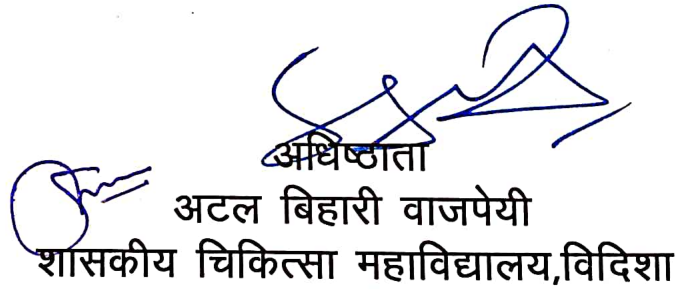 अधिष्ठाता
अटल बिहारी वाजपेयी
शासकीय चिकित्सा महाविद्यालय,विदिशा